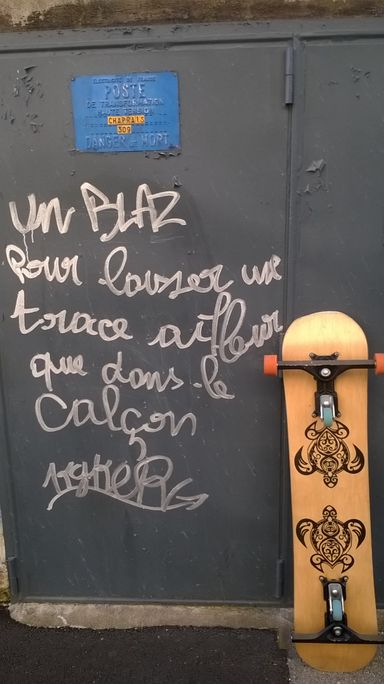 ELECTRICITE DE FRANCE
POSTE
DE TRANSFORMATION
HAUTE TENSION
CHAPRAIS
309
DANGER DE MORT
UN BLAZ
Pour laisser une
trace ailleur
que dans le
Calçon